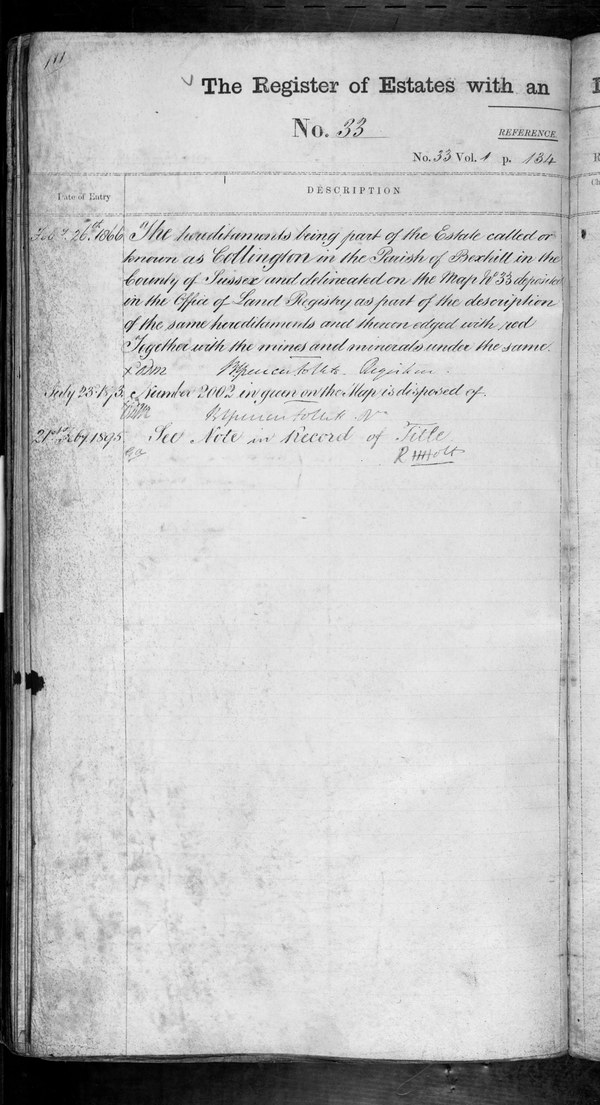 The Register of Estates with an
No. 33
REFERENCE.
No. 33 Vol. 1 p. 134
Date of Entry
DESCRIPTION
Feby. 26th. 1866 The hereditaments being part of the Estate called or
known as Collington in the Parish of Bexhill in the
County of Sussex and delineated on the Map No 33 deposited
in the Office of Land Registry as part of the description
of the same hereditaments and thereon edged with red
Together with the mines and minerals under the same.
Brent Spencer Follett
July 23rd 1873 Number 2002 in green on the Map is disposed of.
Brent Spencer Follett
21st Feby 1895 See Note in Record of Title
R Holt